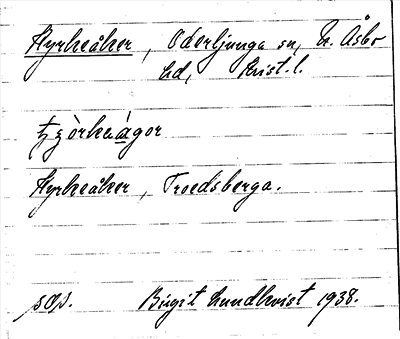 Kyrkeåker, Oderljunga sn, N. Åsbo
hd, Krist. l.
Kyrkeåker, Troedsberga.
sop. Birgit Lundkvist 1938.